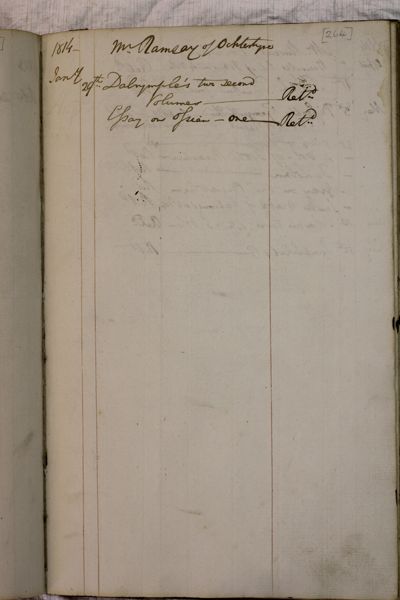 [264]
1814 Mr Ramsay of Ochtertyre
Jany 29th Dalrymple's two second
Volumes Retd
Essay on Ossian - one Retd